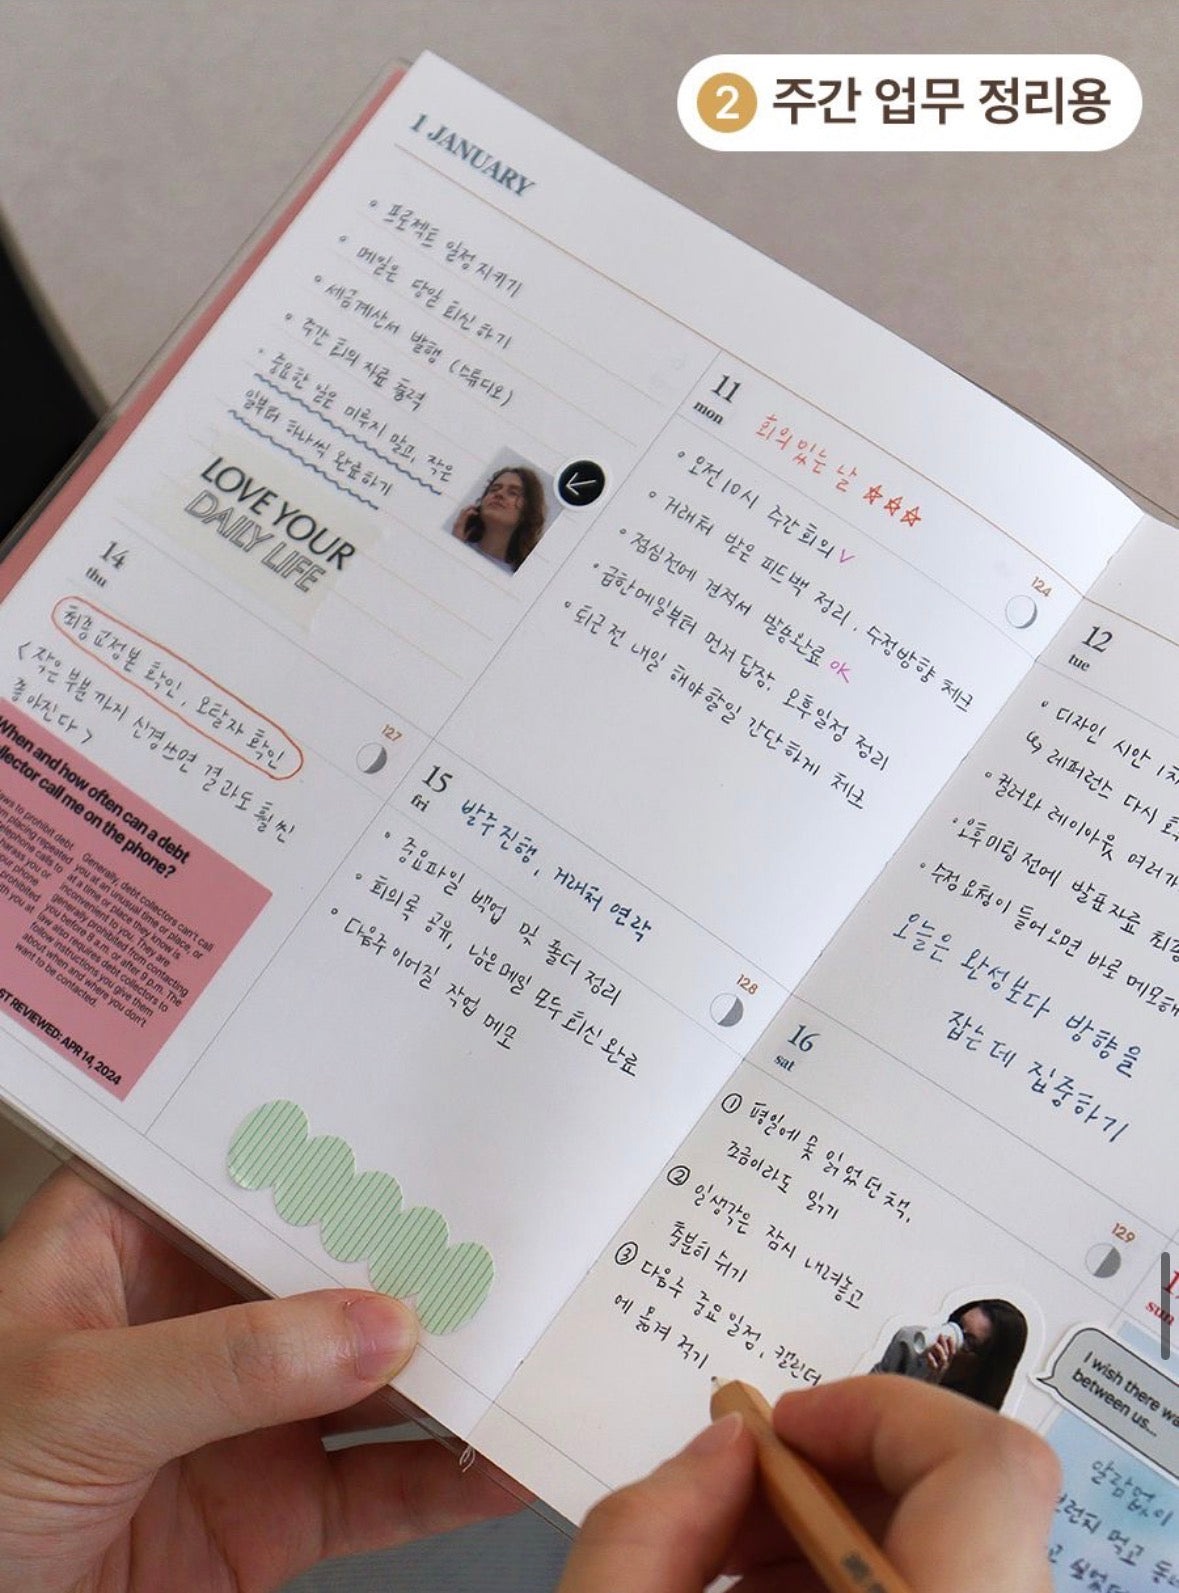 2 주간 업무 정리용
1 JANUARY
• 프로젝트 일정 지키기
• 메일은 당일 회신하기
• 세금계산서 발행 (스튜디오)
• 주간 회의 자료 출력
• 중요한 일은 미루지 말고, 작은
일부터 하나씩 완료하기
LOVE YOUR
DAILY LIFE
11
mon
회의 있는 날 ☆☆☆
• 오전 10시 주간회의 V
• 거래처 받은 피드백 정리. 수정방향 체크
• 점심전에 견적서 발송완료 OK
• 급한메일부터 먼저 답장. 오후일정 정리
• 퇴근 전 내일 해야할일 간단하게 체크
124
12
tue
• 디자인 시안 1차
↳ 레퍼런스 다시
• 컬러와 레이아웃 여러가
• 오후미팅 전에 발표자료 최종
• 수정요청이 들어오면 바로 메모해
오늘은 완성보다 방향을
잡는데 집중하기
14
thu
최종교정본 확인, 오탈자 확인
< 작은 부분까지 신경쓰면 결과도 훨씬
좋아진다 >
127
When and how often can a debt
llector call me on the phone?
aws to prohibit debt
om placing repeated
elephone calls to
harass you or
your phone
prohibited
th you at
Generally, debt collectors can't call
you at an unusual time or place, or
at a time or place they know is
inconvenient to you. They are
generally prohibited from contacting
you before 8 a.m. or after 9 p.m. The
law also requires debt collectors to
follow instructions you give them
about when and where you don't
want to be contacted.
ST REVIEWED: APR 14, 2024
15
fri
발주진행, 거래처 연락
• 중요파일 백업 및 폴더 정리
• 회의록 공유, 남은메일 모두 회신완료
• 다음주 이어질 작업 메모
128
16
sat
① 평일에 못 읽었던 책,
조금이라도 읽기
② 일생각은 잠시 내려놓고
충분히 쉬기
③ 다음주 중요일정, 캘린더
에 옮겨 적기
129
sun
I wish there wa
between us...
알람없이
먹고